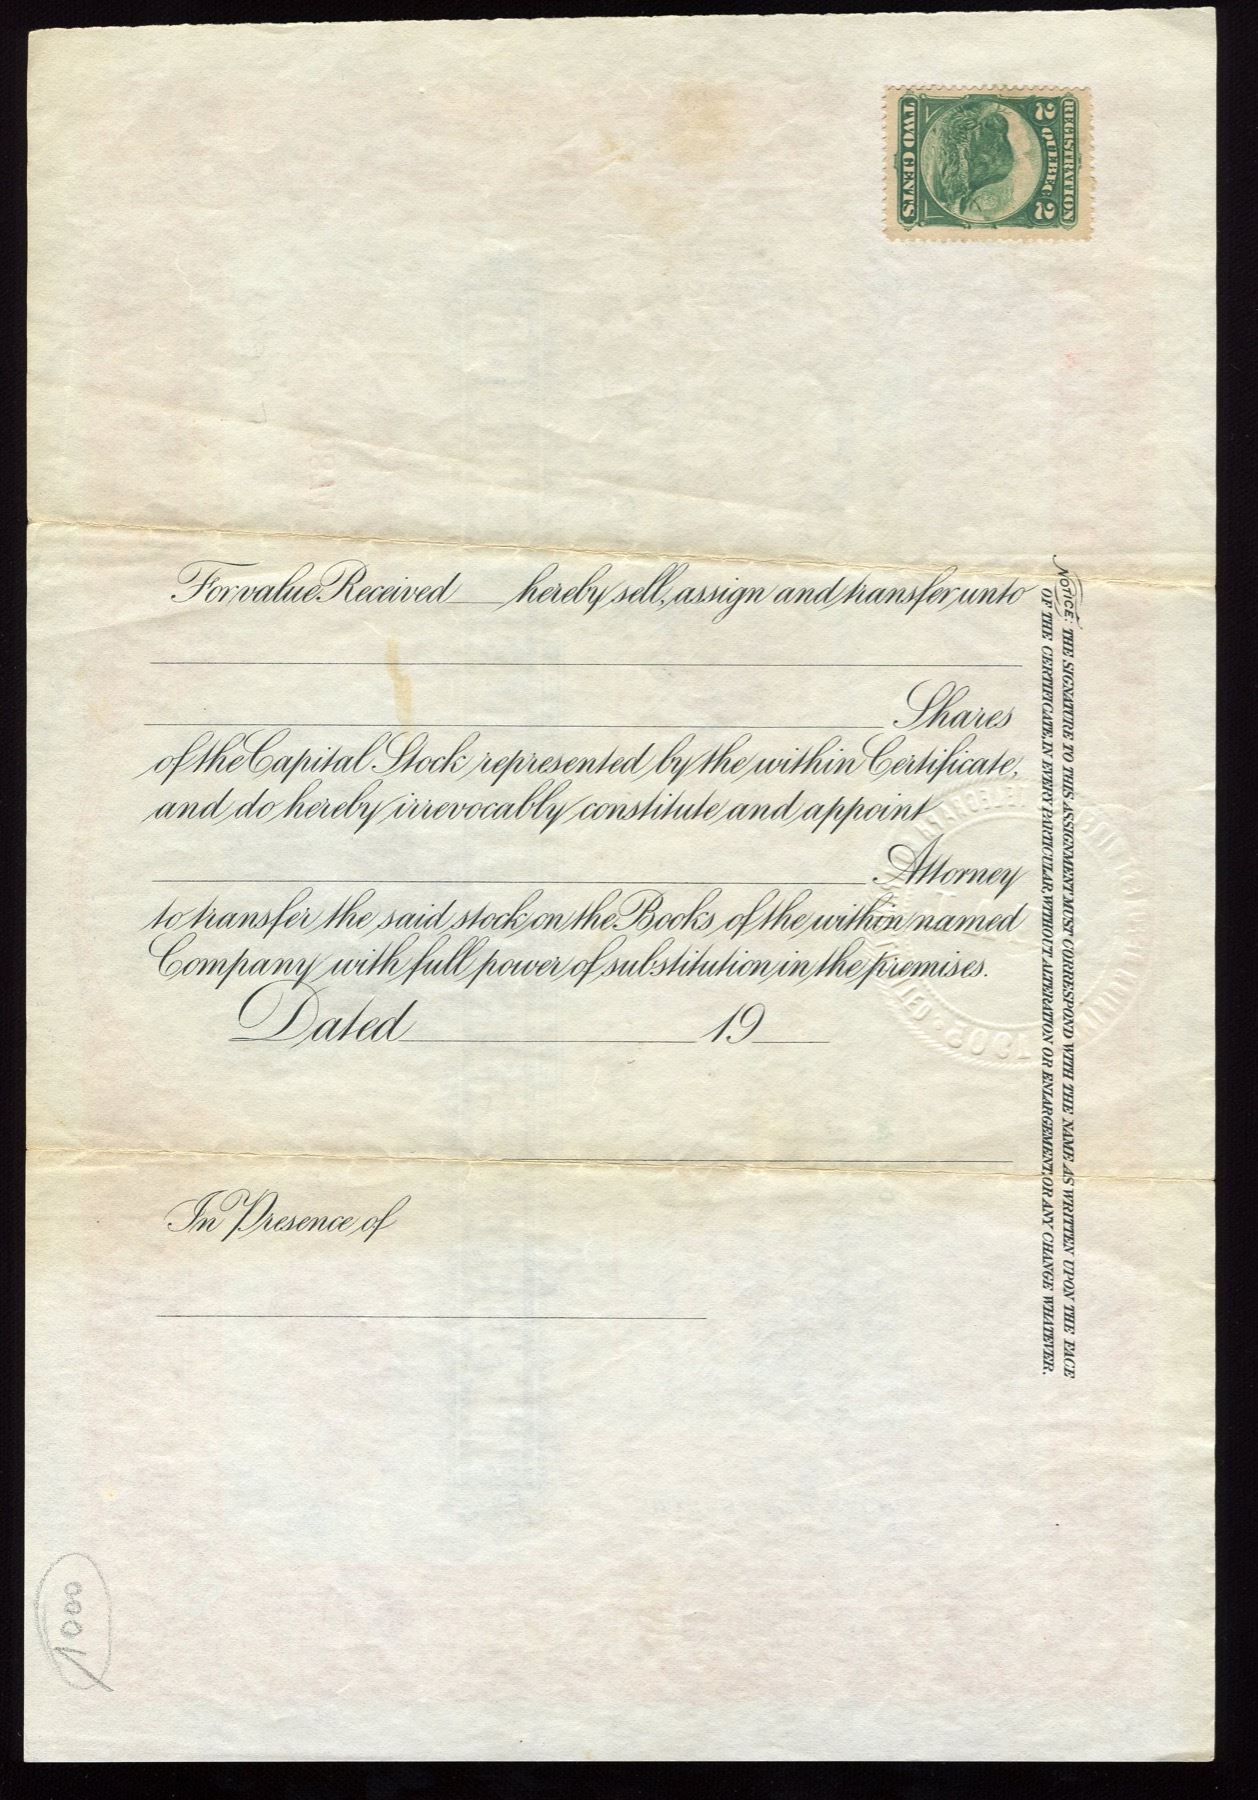 REGISTRATION
2 QUEBEC 2
TWO CENTS
For value Received ____ hereby sell, assign and transfer unto
Shares
of the Capital Stock represented by the within Certificate,
and do hereby irrevocably constitute and appoint
Attorney
to transfer the said stock on the Books of the within named
Company with full power of substitution in the premises.
Dated ____ 19 ____
In Presence of
NOTICE: THE SIGNATURE TO THIS ASSIGNMENT MUST CORRESPOND WITH THE NAME AS WRITTEN UPON THE FACE
OF THE CERTIFICATE, IN EVERY PARTICULAR, WITHOUT ALTERATION OR ENLARGEMENT, OR ANY CHANGE WHATEVER.
1000